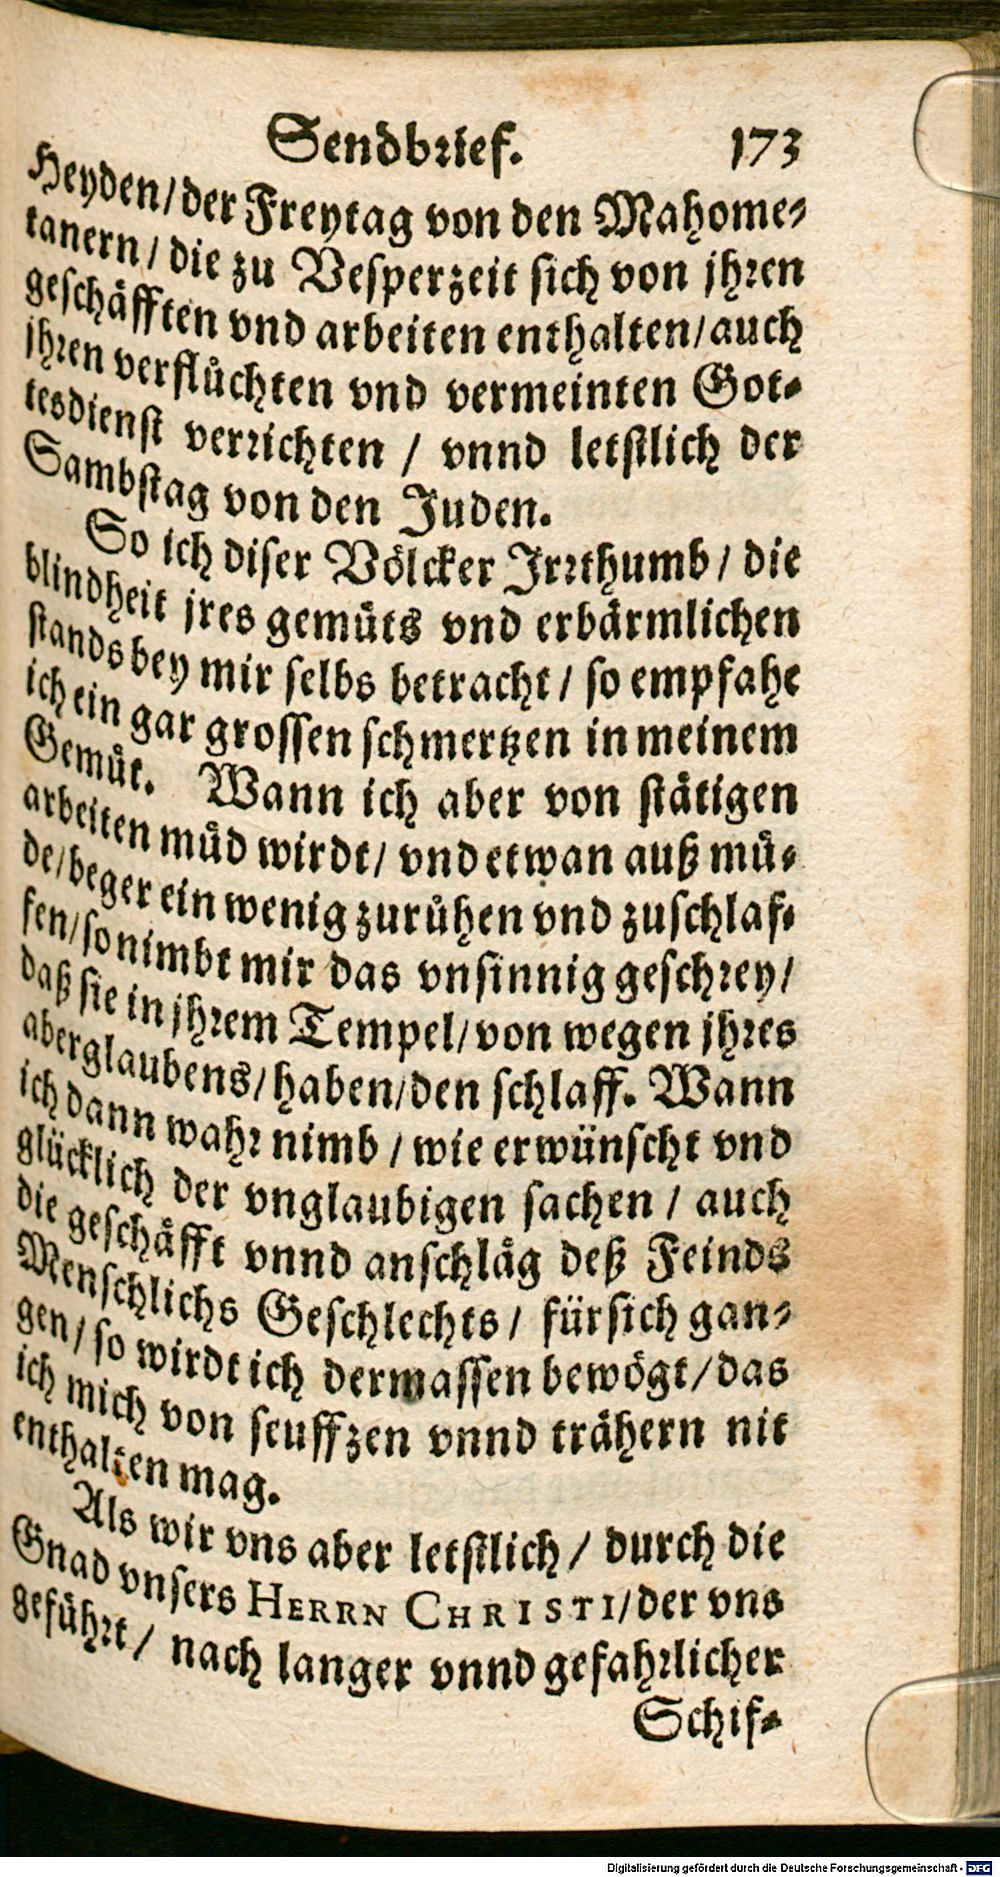 Sendbrief. 173
Heyden/der Freytag von den Mahome-
tanern/ die zu Vesperzeit sich von jhren
geschäfften vnd arbeiten enthalten/auch
jhren verflůchten vnd vermeinten Got-
tesdienst verrichten / vnnd letstlich der
Sambstag von den Juden.
So ich diser Völcker Irrthumb/ die
blindheit jres gemůts vnd erbärmlichen
stands bey mir selbs betracht/ so empfahe
ich ein gar grossen schmertzen in meinem
Gemůt. Wann ich aber von stätigen
arbeiten můd wirdt/ vnd etwan auß mů-
de/beger ein wenig zurůhen vnd zuschlaf-
fen/so nimbt mir das vnsinnig geschrey/
daß sie in jhrem Tempel/von wegen jhres
aberglaubens/haben/den schlaff. Wann
ich dann wahr nimb / wie erwünscht vnd
glücklich der vnglaubigen sachen / auch
die geschäfft vnnd anschläg deß Feinds
Menschlichs Geschlechts/ für sich gan-
gen/ so wirdt ich dermassen bewögt/das
ich mich von seuffzen vnnd trähern nit
enthalten mag.
Als wir vns aber letstlich/ durch die
Gnad vnsers HERRN CHRISTI/der vns
geführt/ nach langer vnnd gefahrlicher
Schif-
Digitalisierung gefördert durch die Deutsche Forschungsgemeinschaft - DFG